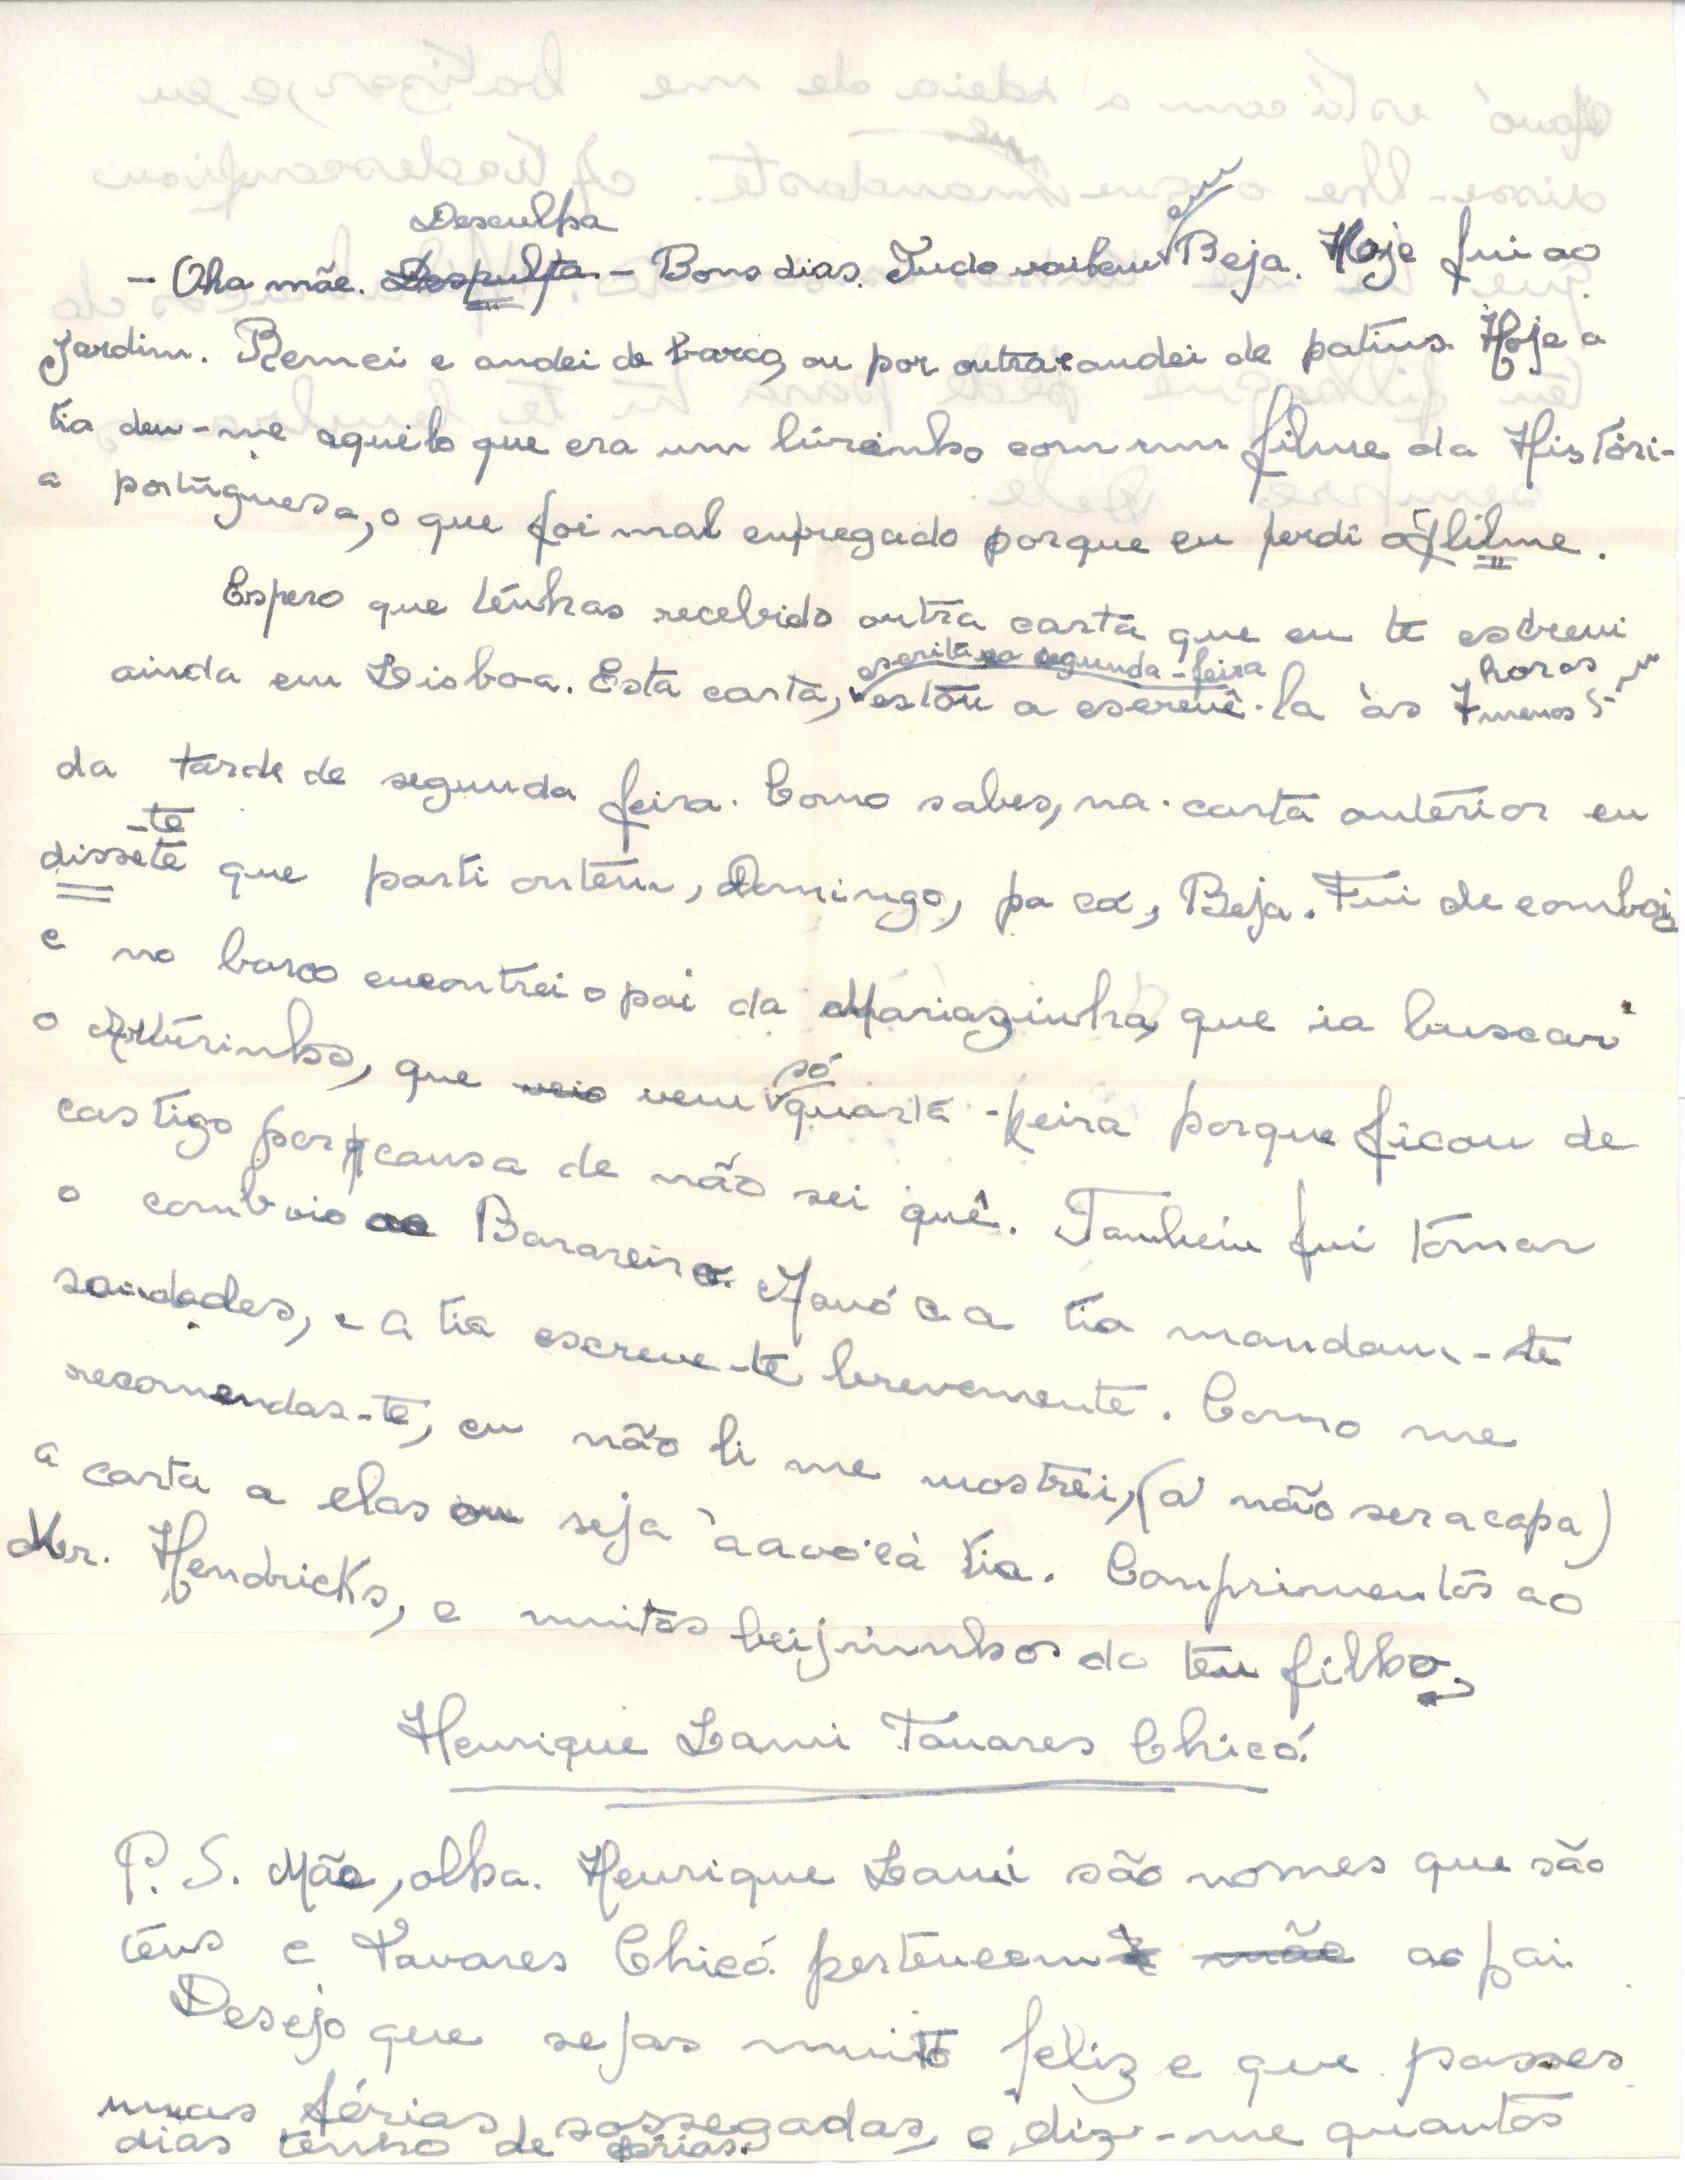 Desculpa
- Olha mãe. Despulpta. - Bons dias. Tudo vai bem em Beja. Hoje fui ao
jardim. Remei e andei de barco, ou por outra andei de patins. Hoje a
tia deu-me aquilo que era um livrinho com um filme da Históri-
a portuguesa, o que foi mal enpregado porque eu perdi o filme.
Espero que tenhas recebido outra carta que eu te escrevi
ainda em Lisboa. Esta carta, escrita na segunda-feira estou a escrevê-la às 7 horas menos 5 m
da tarde de segunda feira. Como sabes, na carta anterior eu
-te
dissete que parti ontem, Domingo, pa cá, Beja. Fui de comboio
e no barco encontrei o pai da Mariazinha, que ia buscar
o Arturinho, que veio vem só quarta-feira porque ficou de
castigo por causa de não sei quê. Também fui tomar
o comboio ao Barareiro. A avó e a tia mandam-te
saudades, e a tia escreve-te brevemente. Como me
recomendas-te, eu não li me mostrei, (a não ser a capa)
a carta a elas ou seja à avó e à tia. Comprimentos ao
Mr. Hendricks, e muitos beijinhos do teu filho,
Henrique Lami Tavares Chicó.
P. S. Mãe, olha. Henrique Lami são nomes que são
teus e Tavares Chicó pertencem mãe ao pai.
Desejo que sejas muito feliz e que passes
umas férias sossegadas, e diz-me quantos
dias tenho de férias.